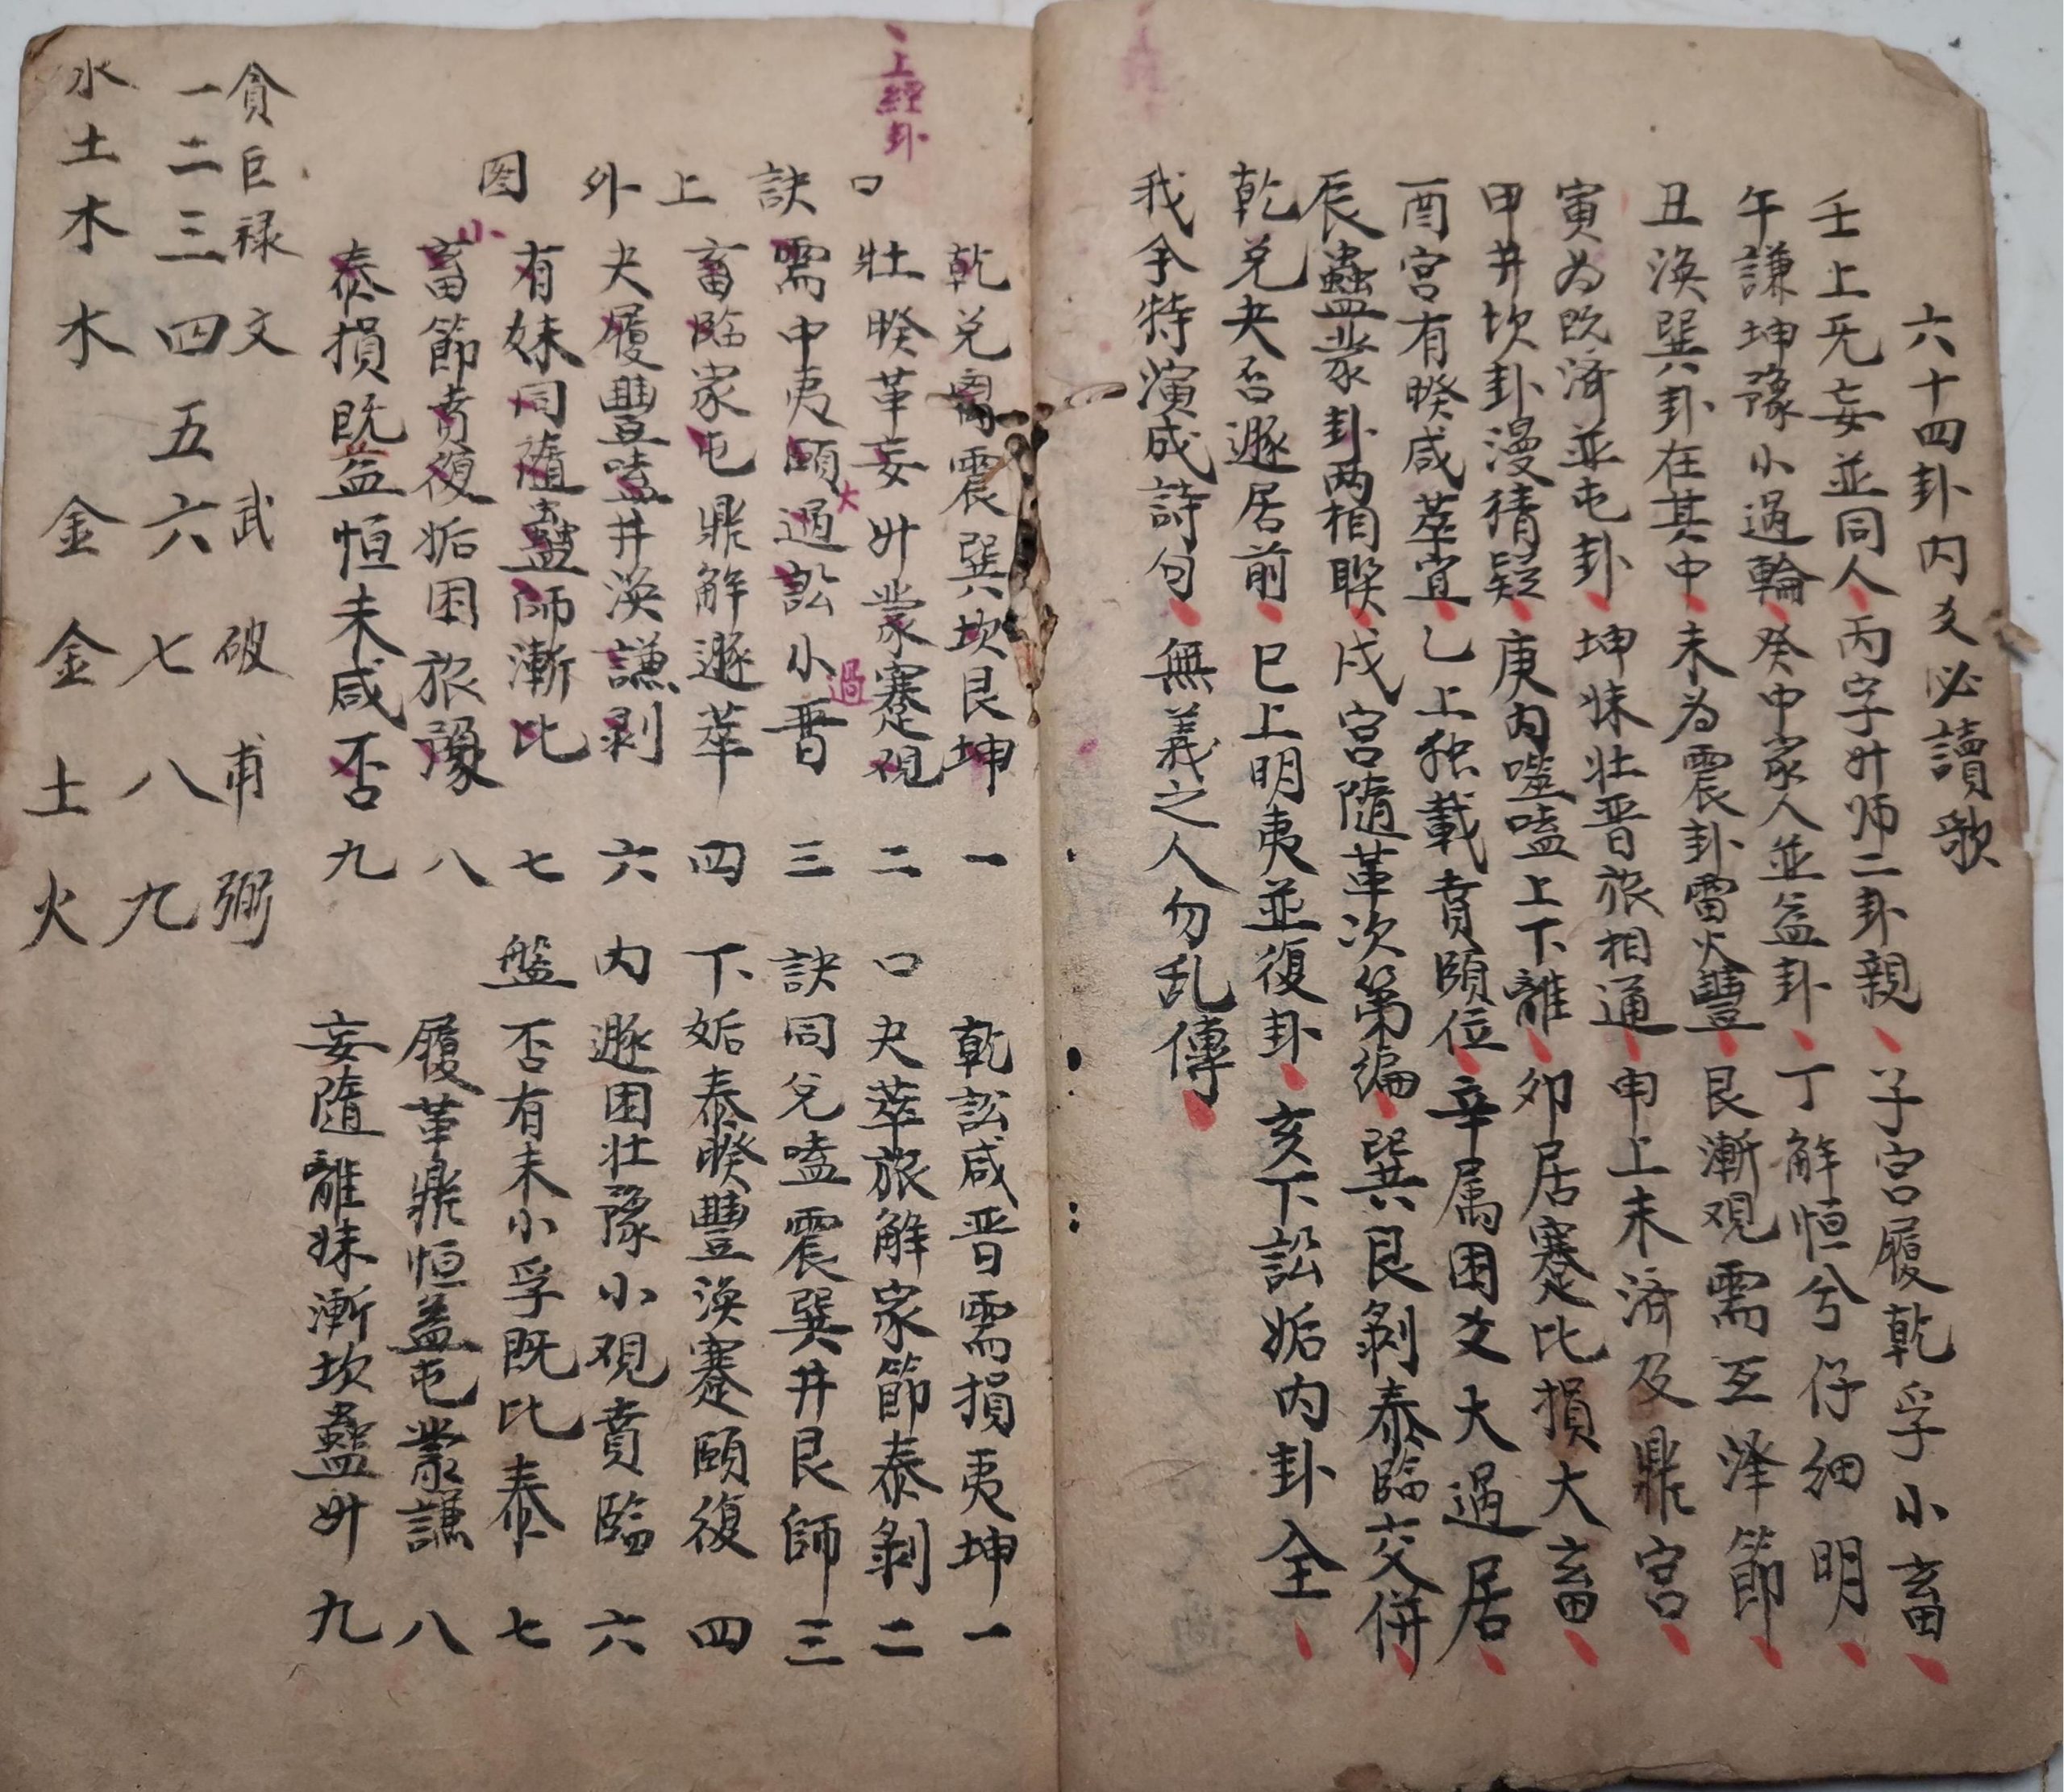 六十四卦内爻必讀歌
壬上无妄並同人丙字升师二卦親子宮履乾孚小畜
午謙坤豫小過輪癸中家人並益卦丁解恒兮仔细明
丑渙巽卦在其中未为震卦雷火豐艮漸观需互泽節
寅为既済並屯卦坤妹壮晋旅相通申上未済及鼎宮
甲井坎卦漫猜疑庚内噬嗑上下離卯居蹇比損大畜
酉宮有睽咸萃宜乙上独載賁頤位辛属困爻大過居
辰蠱蒙卦两相联戍宮隨革次第编巽艮剝泰臨交併
乾兑夬否遯居前巳上明夷並復卦亥下訟姤内卦全
我今特演成詩句無義之人勿乱傳
上經卦
口訣上外图
乾兑离震巽坎艮坤一
壮睽革妄升蒙蹇观二
需中夷頤大過訟小過晋三
畜臨家屯鼎解遯萃四
夬履豐嗑井渙謙剥六
有妹同随蠱師漸比七
小畜節賁復姤困旅豫八
泰損既益恒未咸否九
口訣下内盤
乾訟咸晋需損夷坤一
夬萃旅解家節泰剝二
同兑嗑震巽井艮師三
姤泰睽豐渙蹇頤復四
遯困壮豫小观賁臨六
否有未小孚既比泰七
履革鼎恒盖屯蒙謙八
妄隨離妹漸坎蠱升九
貪巨禄文武破甫弼
一二三四五六七八九
水土木木金金土火